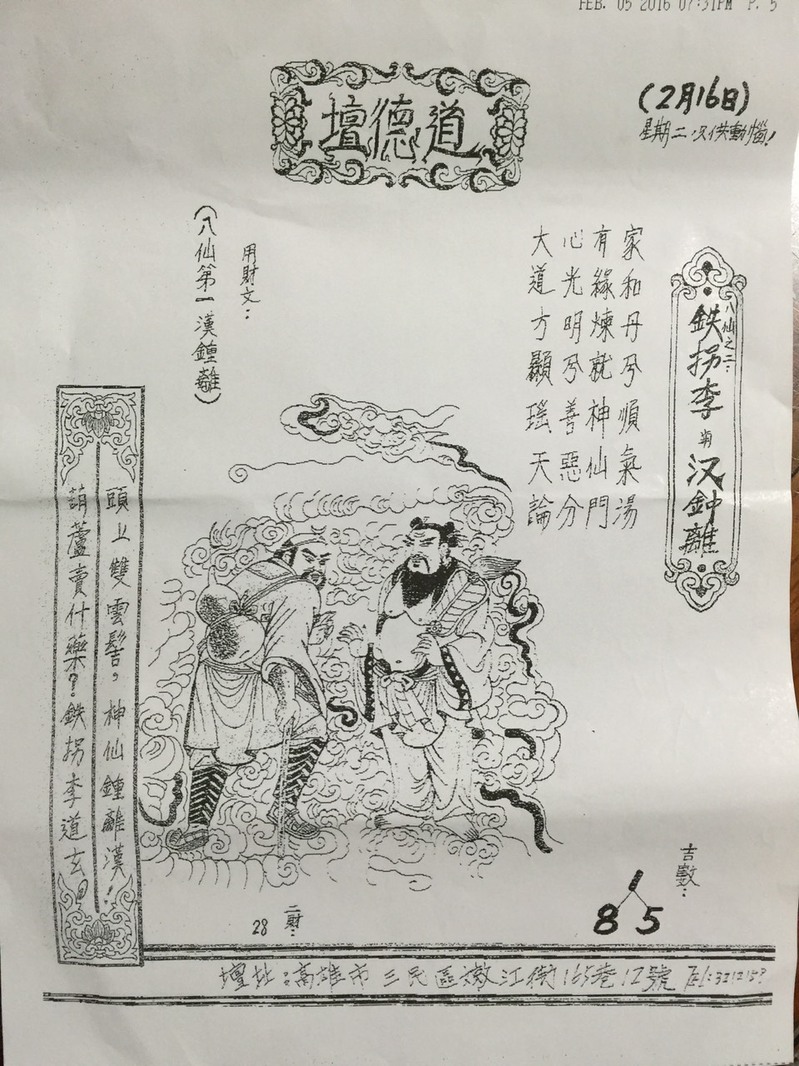 FEB. 05 2016 07:31PM P. 5
道德壇
(2月16日)
星期二 仅供動惱!
八仙之二:
鉄拐李 漢鈡離
家和丹兮順氣湯
有緣煉就神仙門
心光明兮善惡分
大道方顯瑤天論
用財文:
(八仙第一漢鍾離)
頭上雙雲髻,神仙鍾離漢!
葫蘆賣什藥?鉄拐李道玄!
吉數:
1
8 5
二財:
28
壇址:高雄市三民區嫩江街165巷12號 Tel: